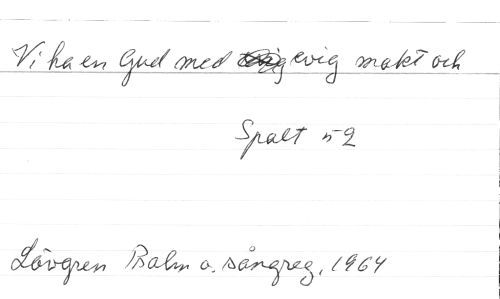 Vi ha en Gud med evig makt och
Spalt 52
Lövgren Psalm o. sångreg. 1964